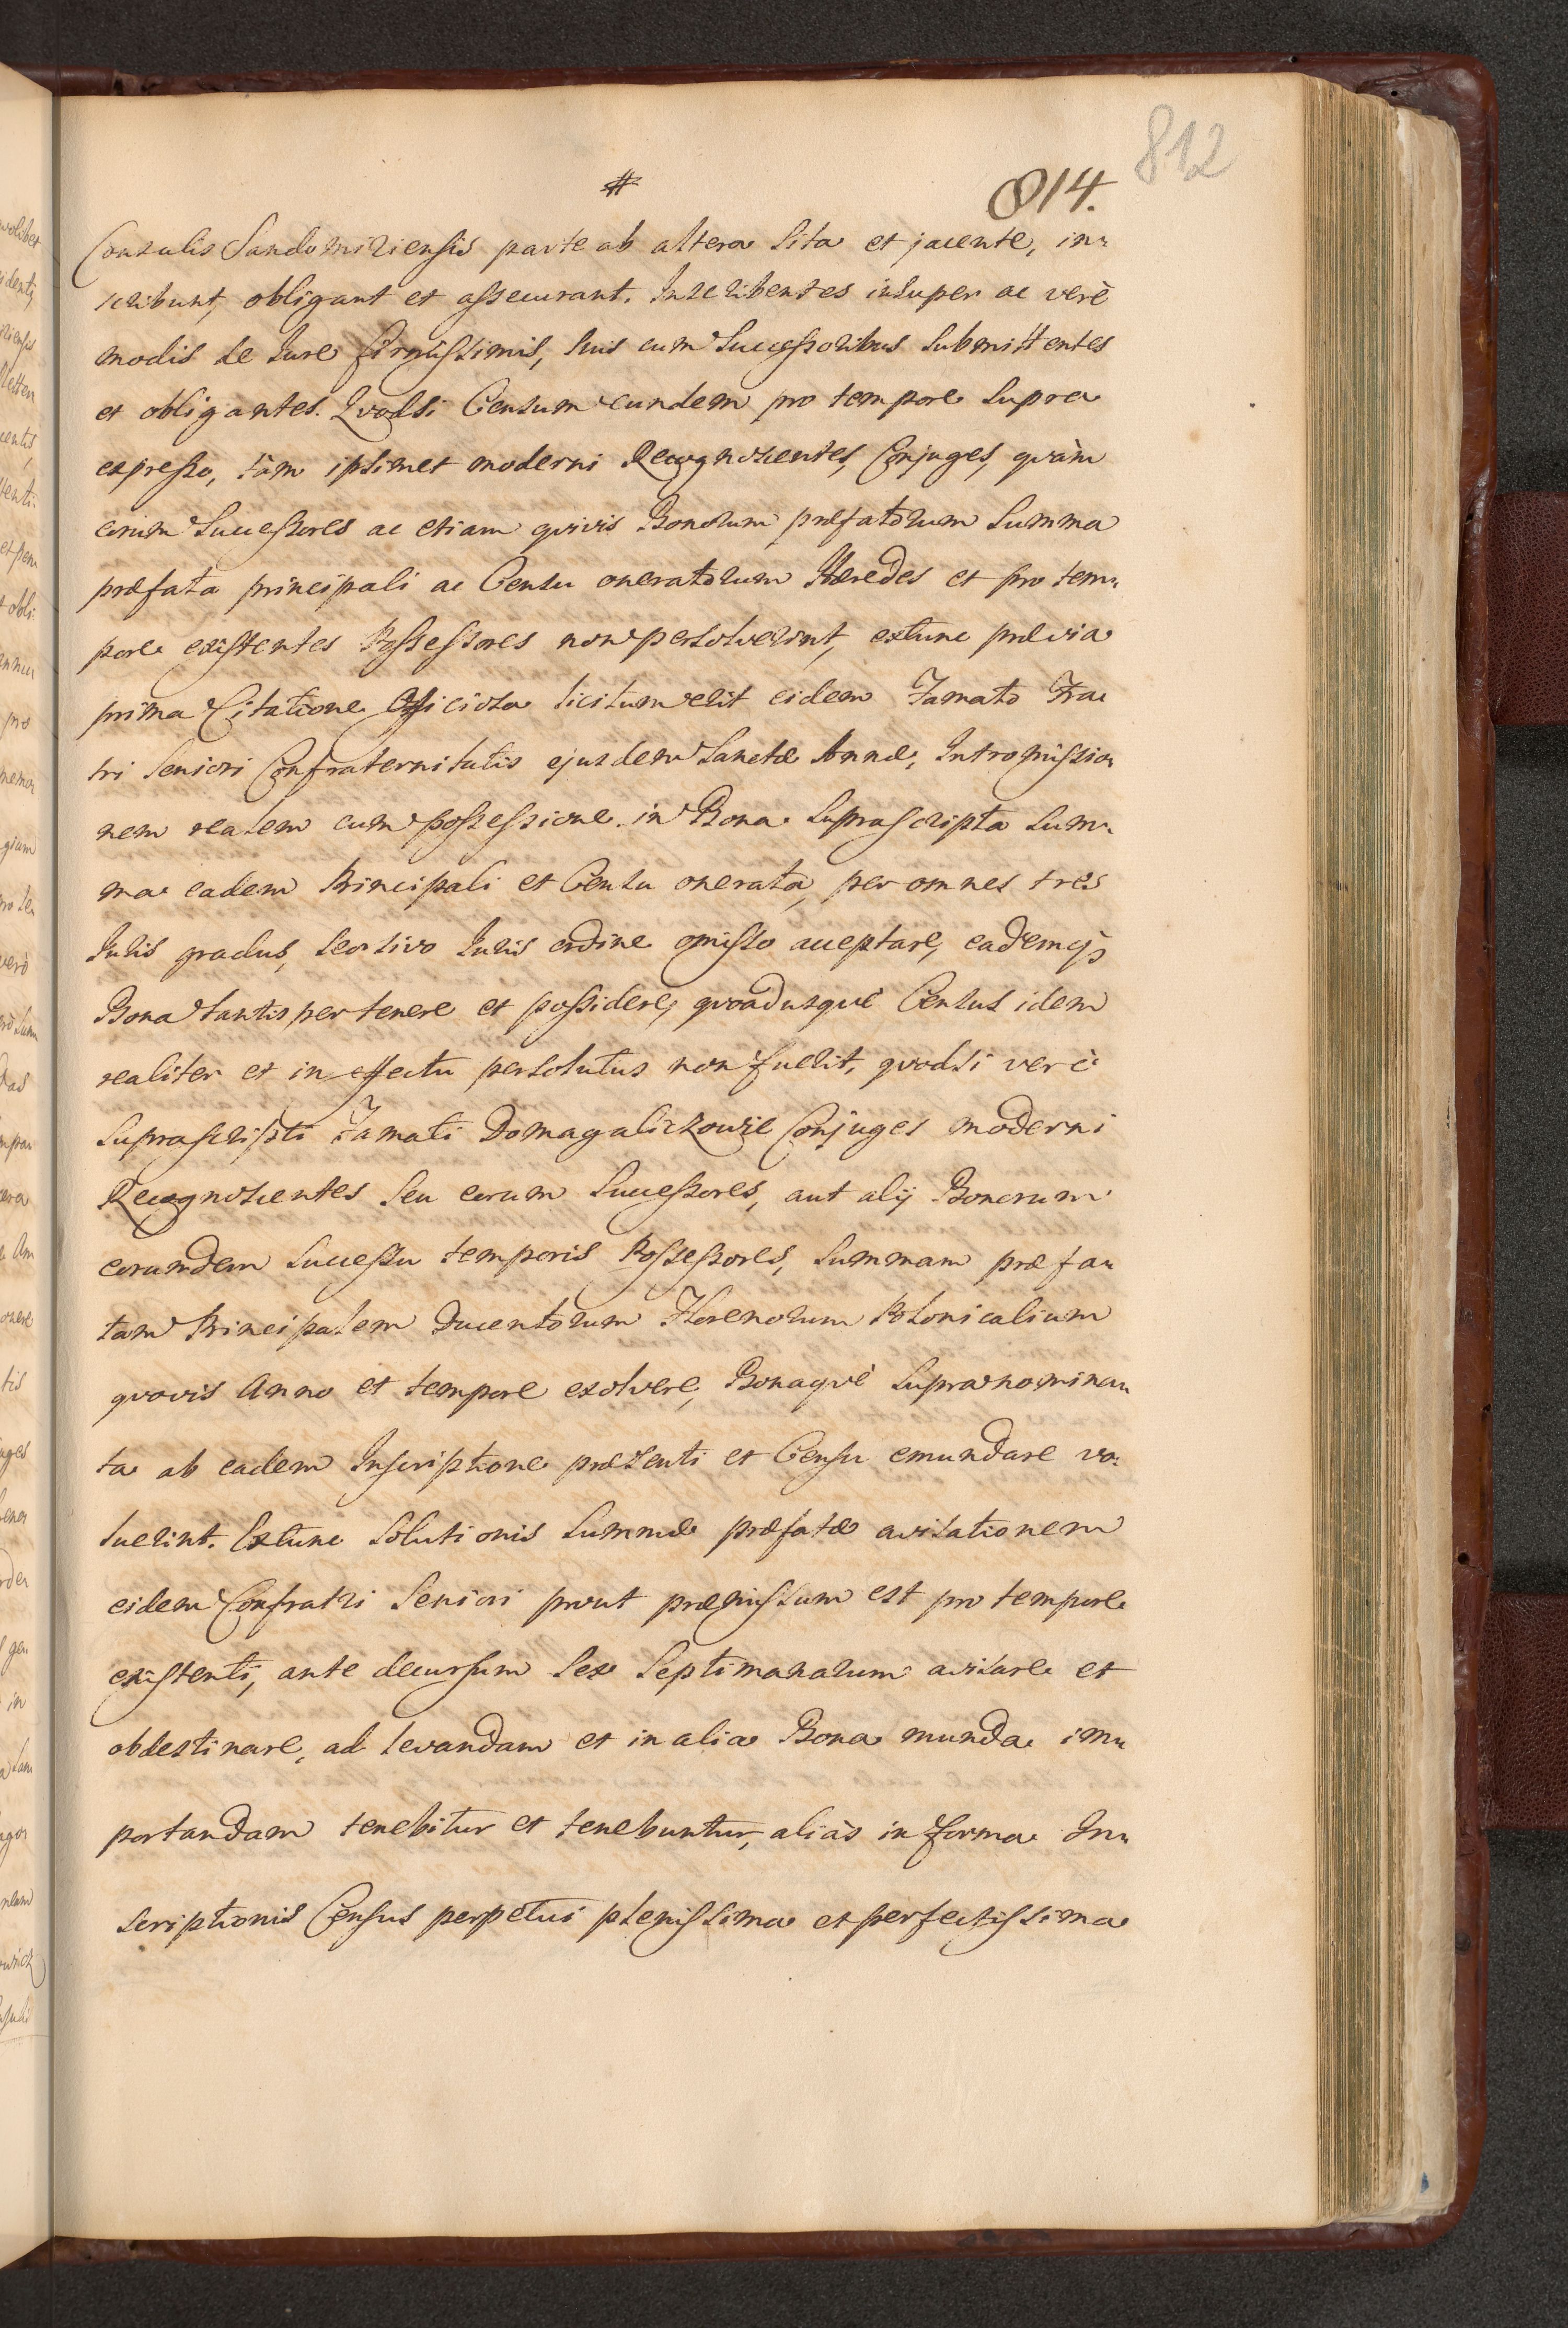 812
#
814.
Consulis Sandomiriensis parte ab altera sita et jacente, in-
scribunt, obligant et assecurant. Inscribentes insuper ac verè
modis de Jure firmissimis, suis cum Successoribus submittentes
et obligantes. Qvodsi Censum eundem pro tempore supra
expresso, tàm ipsimet moderni Recognoscentes, Conjuges, qvàm
eorum Successores ac etiam qvivis Bonorum præfatorum summa
præfata principali ac Censu oneratorum Hæredes et pro tem-
pore existentes Possessores non persolverint, extunc prævia
prima Citatione Officiosa licitum erit eidem Famato Fra-
tri Seniori Confraternitatis ejusdem Sanctæ Annæ, Intromissio-
nem realem cum possessione in Bona suprascripta sum-
ma eadem Principali et Censu onerata, per omnes tres
Juris gradus, seostivo Juris ordine omisso acceptare, eademq3
Bona tantisper tenere et possidere, qvoadusqve Census idem
realiter et in effectu persolutus non fuerit, qvodsi verè
suprascripti Famati Domagaliczkowie Conjuges moderni
Recognoscentes seu eorum Successores, aut alij Bonorum
eorumdem successu temporis Possessores, summam præfa-
tam Principalem Ducentorum Florenorum Polonicalium
qvovis Anno et tempore exolvere, Bonaqvè supranomina-
ta ab eadem Inscriptione præsenti et Censu emundare vo-
luerint. Extunc solutionis summæ præfatæ avisationem
eidem Confratri Seniori prout præmissum est pro tempore
existenti, ante decursum sex septimanarum avisare et
obdestinare, ad levandam et in alia Bona munda im-
portandam tenebitur et tenebuntur, aliàs in forma In-
scriptionis Census perpetui plenissima et perfectissima